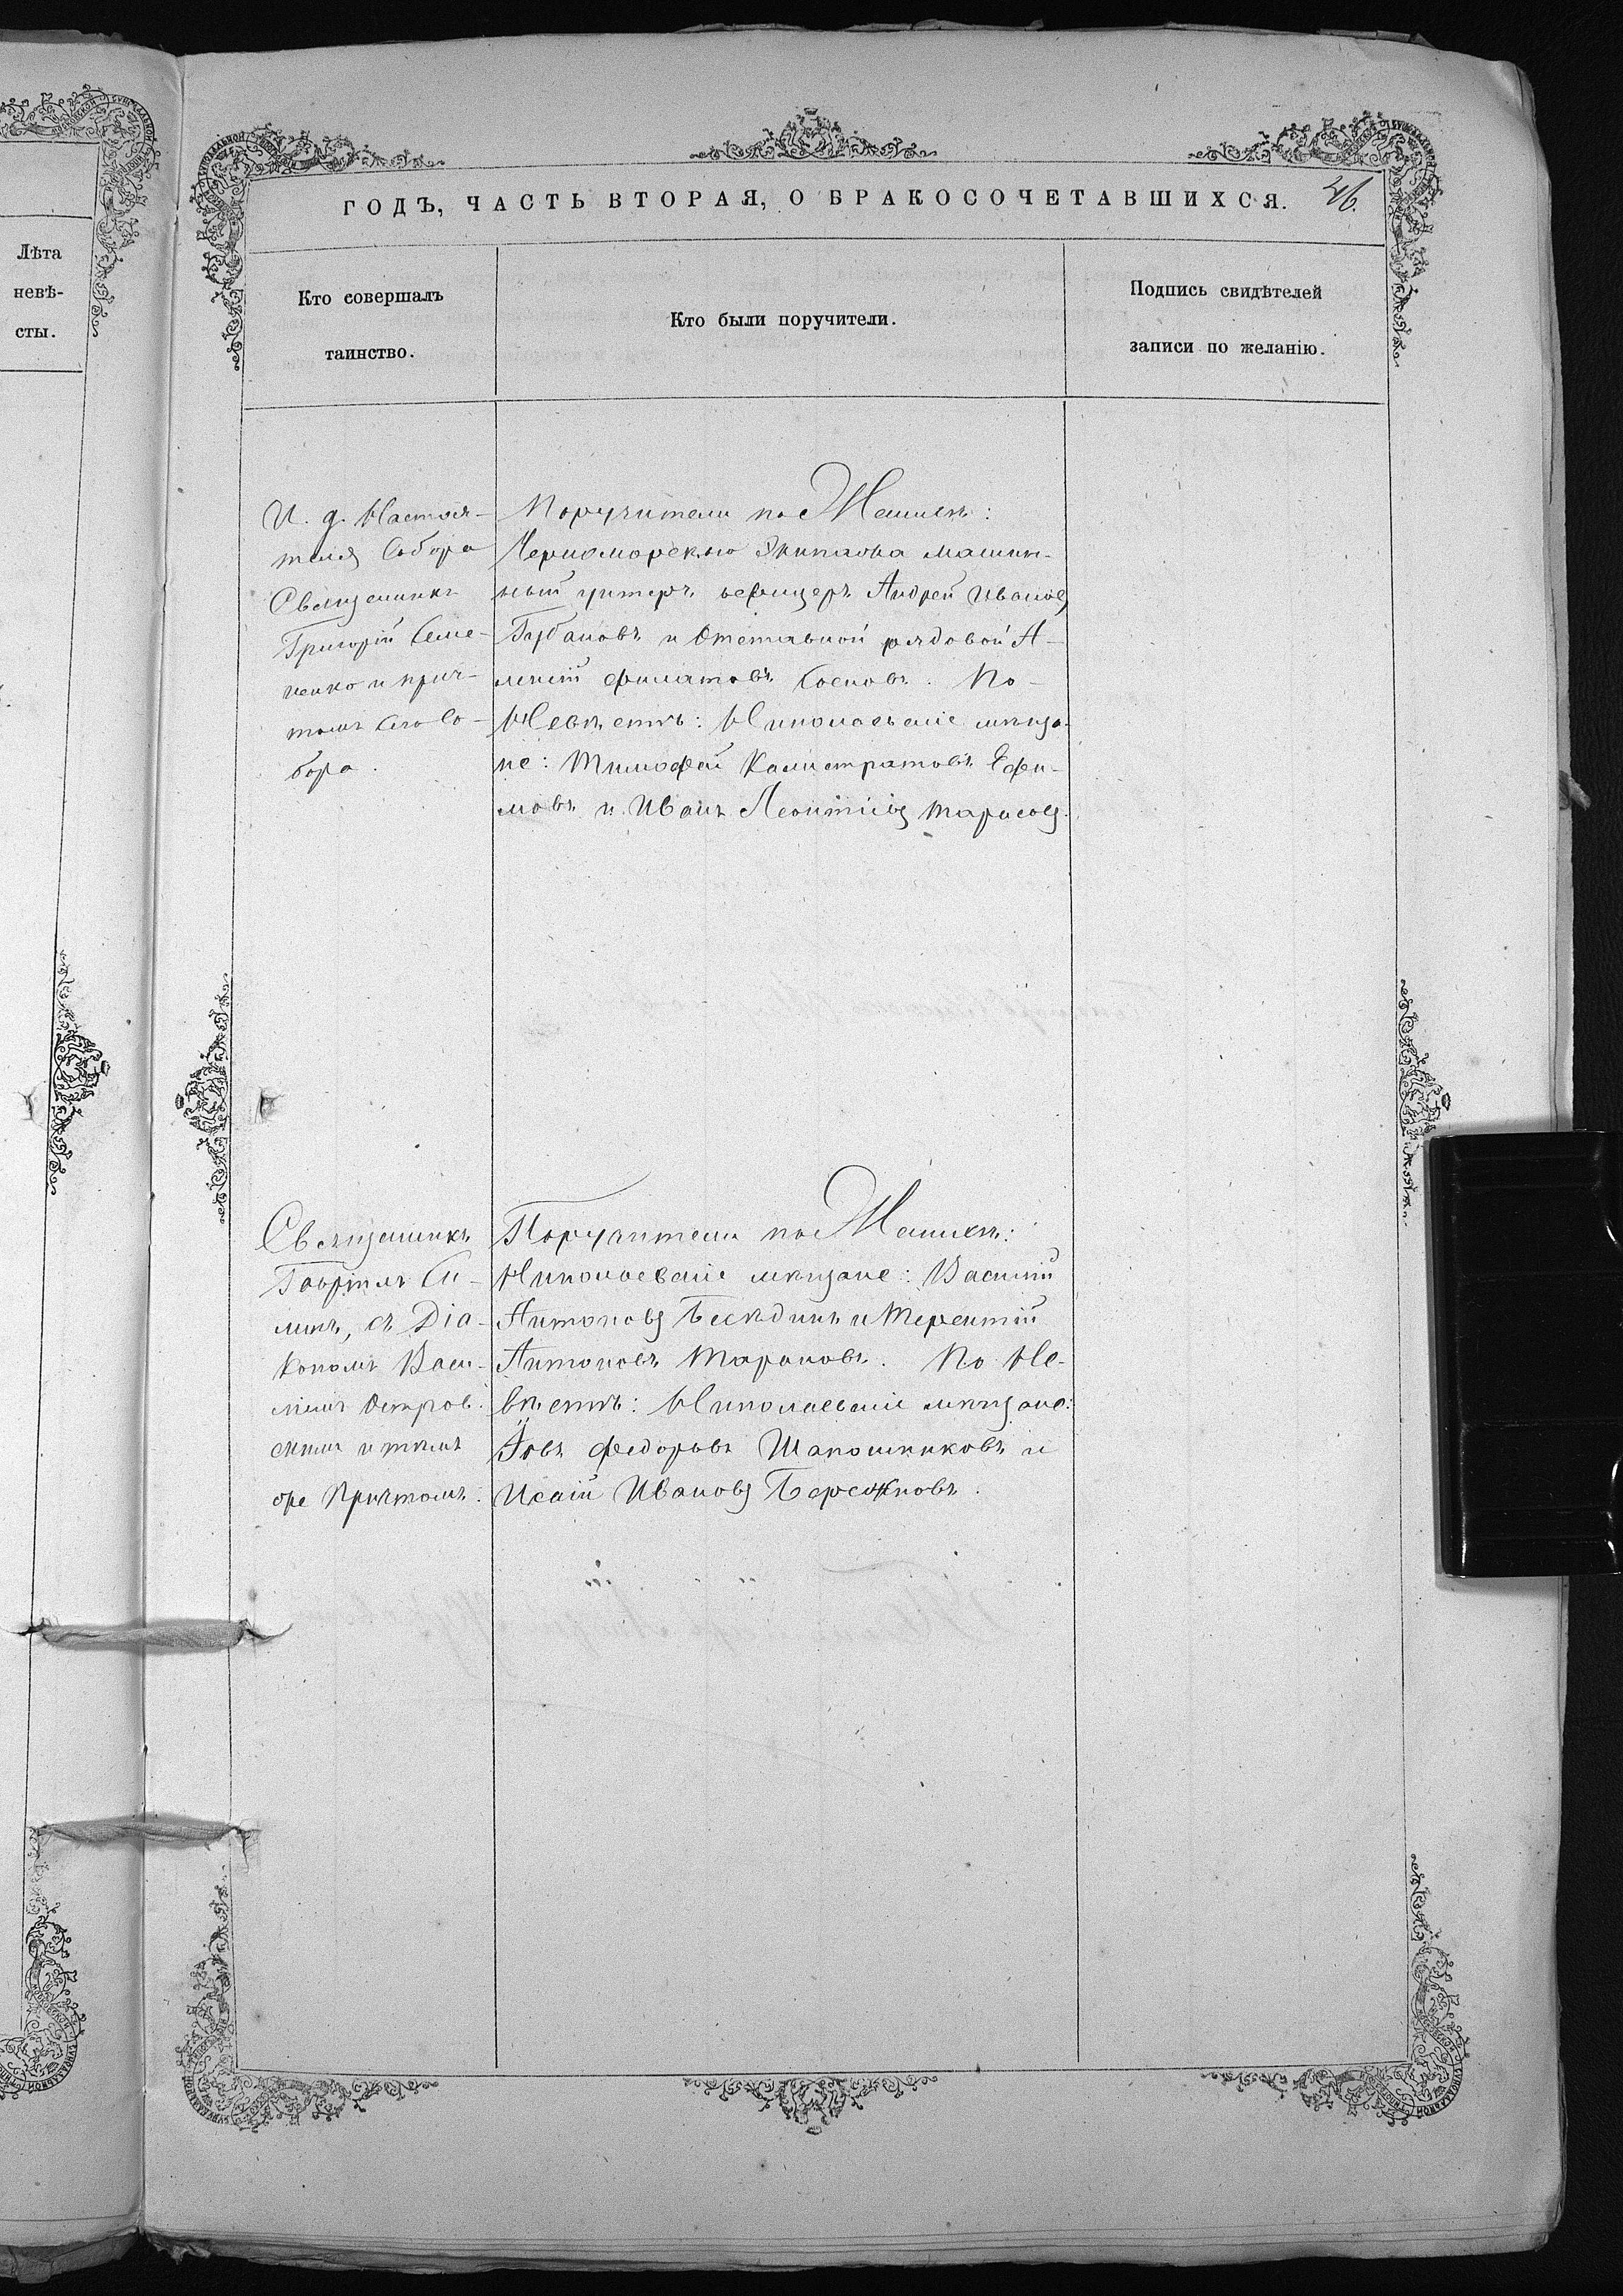 Лѣта
невѣ-
сты.
ГОДЪ, ЧАСТЬ ВТОРАЯ, О БРАКОСОЧЕТАВШИХСЯ.
Кто совершалъ
таинство.
Кто были поручители.
Подпись свидѣтелей
записи по желанію.
И. д. Настоя-
теля Собора
Священникъ
Григорій Семе-
ненко и прич-
томъ сего Со-
бора.
Поручители по Женихѣ:
Черноморскаго Экипажа машин-
ный унтеръ офицеръ Андрей Ивановъ
Губановъ и Отставной рядовой А-
лексій Филатовъ Сосновъ. По
Невѣстѣ: Николаевскіе мѣща-
не: Тимофей Калистратовъ Ефи-
мовъ и Иванъ Леонтіевъ Тарасовъ.
Священникъ
Гавріилъ
съ Діа-
кономъ Васи-
ліемъ Остров-
скимъ и тѣмъ
же Причтомъ.
Поручители по Женихѣ:
Николаевскіе мѣщане: Василій
Антоновъ Бесѣдинъ и Терентій
Антоновъ Тарановъ. По Не-
вѣстѣ: Николаевскіе мѣщане:
Іовъ Федоровъ Шапошниковъ и
Исаій Ивановъ Бережновъ.